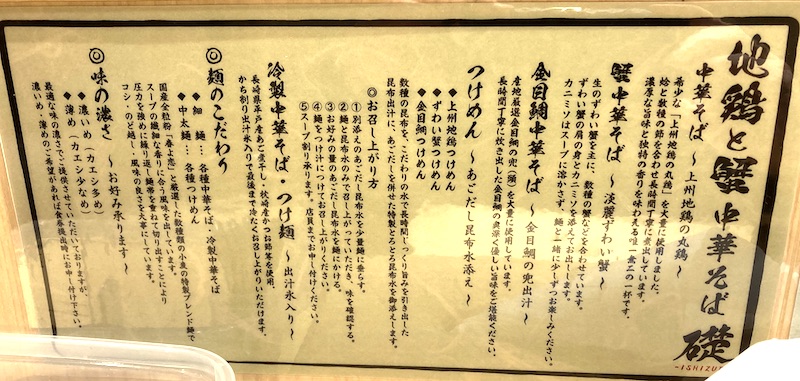 地鶏と蟹 中華そば 礎
-ISHIZU
中華そば ～上州地鶏の丸鶏～
希少な「上州地鶏の丸鶏」を大量に使用しました。
蛤と数種の節を合わせ長時間丁寧に煮出しています。
濃厚な旨味と独特の香りを味わえる唯一無二の一杯です。
蟹中華そば ～淡麗ずわい蟹～
生のずわい蟹を主に、数種の蟹などを合わせています。
ずわい蟹の肩の身とカニミソを添えてお出しします。
カニミソはスープに溶かさず、麺と一緒に少しずつお楽しみください。
金目鯛中華そば ～金目鯛の兜出汁～
産地厳選金目鯛の兜（頭）を大量に使用しています。
長時間丁寧に炊き出した金目鯛の奥深く優しい旨味をご堪能ください。
つけめん ～あごだし昆布水添え～
◆上州地鶏つけめん
◆ずわい蟹つけめん
◆金目鯛つけめん
数種の昆布を、こだわりの水で長時間じっくり旨みを引き出した
昆布出汁に、あごだしを併せた特製とろとろ昆布水を御添えします。
◎お召し上がり方
①別添えのあごだし昆布水を少量麺に垂らす。
②麺と昆布水のみで召し上がっていただき、味を確認する。
③お好みの量のあごだし昆布水を麺にかける。
④麺をつけ汁につけてお召し上がりください。
⑤スープ割り承ります。店員までお申し付けください。
冷製中華そば・つけ麺 ～出汁氷入り～
長崎県平戸産あご煮干し・枕崎産かつお節等を使用。
かち割り出汁氷入りで最後まで冷たくお召し上がりいただけます。
◎麺のこだわり
◆細麺…各種中華そば 冷製中華そば
◆中太麺…各種つけめん
国産全粒粉「春よ恋」と厳選した数種類の小麦の特製ブレンド麺で
スープの繊細な香りに合う風味を出しています。
圧力を強めに練り返し麺帯を重ねて切り出すことにより
コシ・のど越し・風味の良さを大事にしています。
◎味の濃さ ～お好み承ります～
◆濃いめ（カエシ多め）
◆薄め（カエシ少なめ）
最適な味の濃さでご提供させていただいておりますが、
濃いめ・薄めのご希望があれば食券提出時にお申し付け下さい。